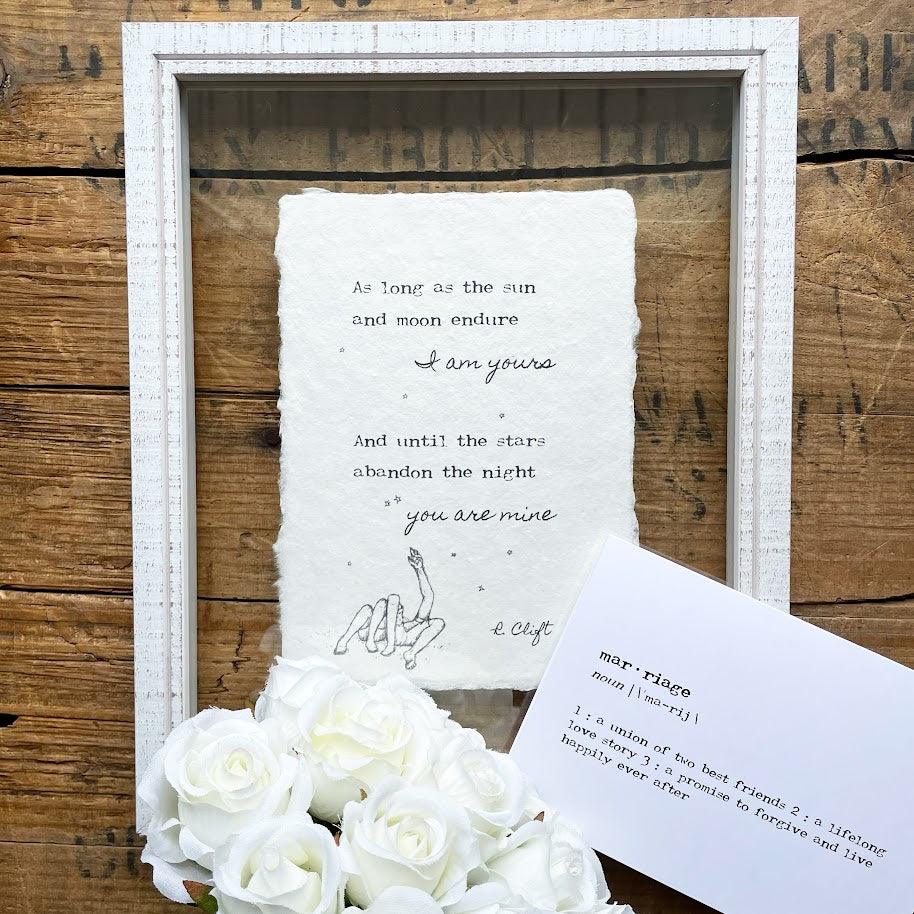 As long as the sun
and moon endure
I am yours
And until the stars
abandon the night
you are mine
R. Clift
mar·riage
noun |\'ma-rij|
1 : a union of two best friends 2 : a lifelong
love story 3 : a promise to forgive and live
happily ever after